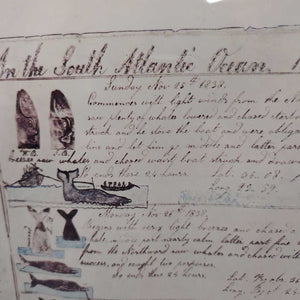 In the South Atlantic Ocean.
Sunday Nov 25th 1838.
Commences with light winds from the N
see plenty of whales lowered and chased
struck and he stove the boat and were oblig
line and let him go middle and latter part
breezes saw whales and chased waist boat struck and
So ends these 24 hours. Lat. 36.08
Long. 22.59
Monday Nov 26th 1838.
Begins with very light breezes and chased a
whale middle part nearly calm latter part fine
from the Northward saw whales and chased with
success, and caught two porpoises.
So ends these 24 hours. Lat.
Long.